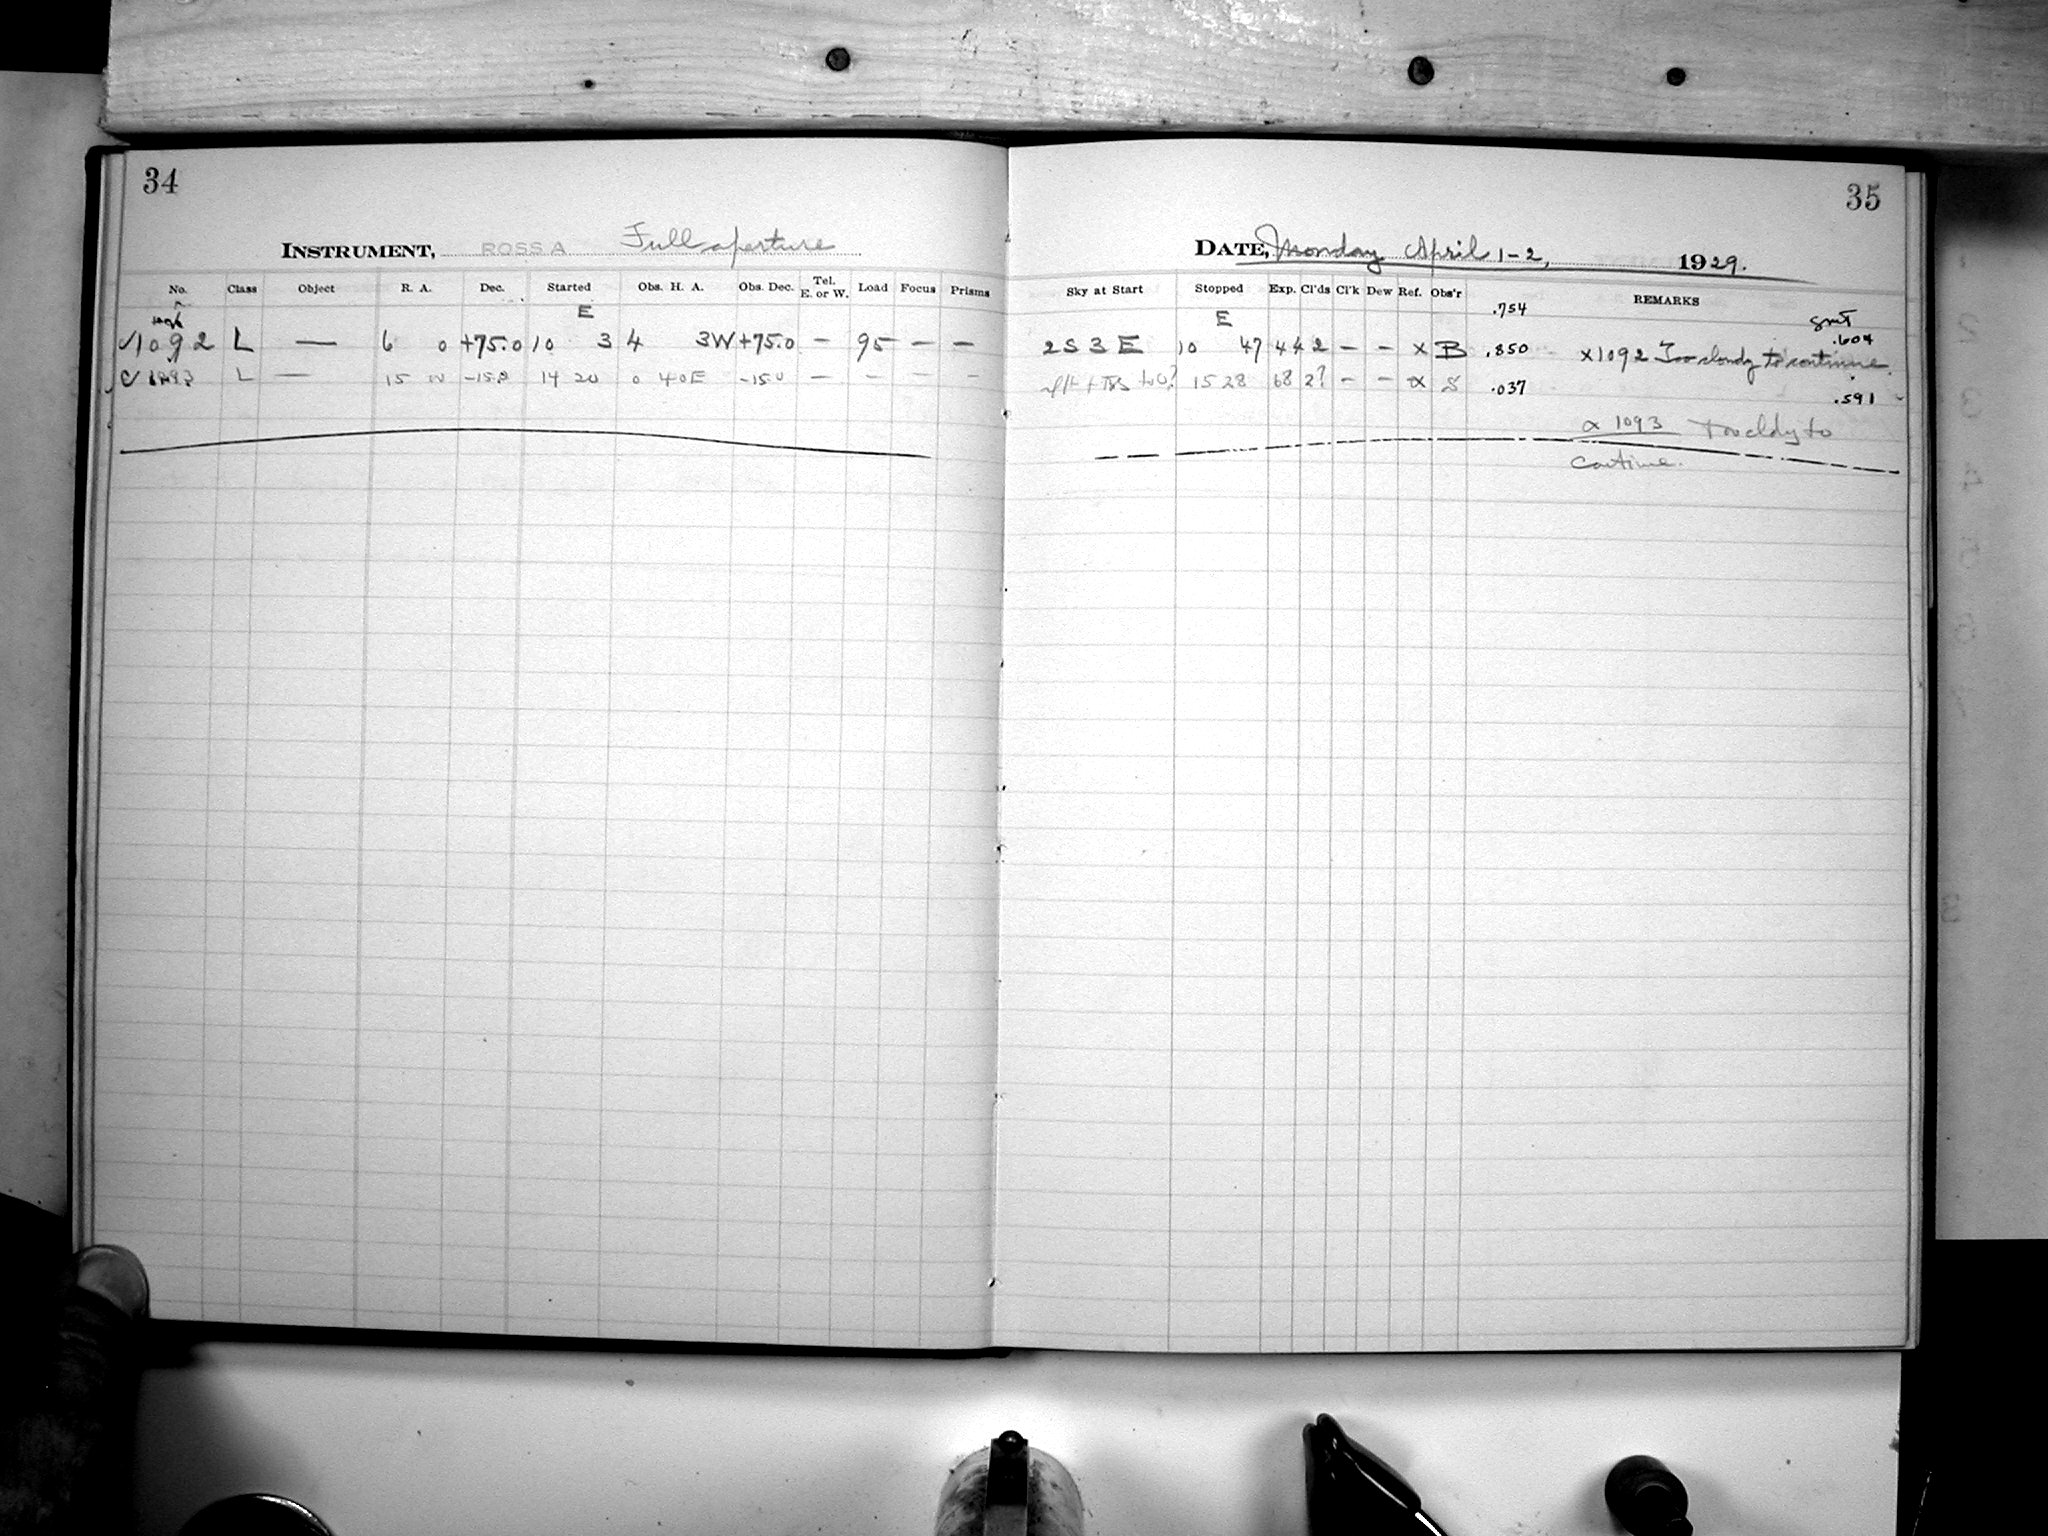 34
INSTRUMENT, ROSS A Full aperture
No. Class Object R. A. Dec. Started Obs. H. A. Obs. Dec. Tel. E. or W. Load Focus Prisms
E
✓1092 L — 6 0 +75.0 10 3 4 3W +75.0 — 95 — —
✓ 1093 L — 15 0 -15.0 14 20 0 40E -15.0 — — — —
35
DATE, Monday April 1-2, 1929.
Sky at Start Stopped Exp. Cl'ds Cl'k Dew Ref. Obs'r REMARKS
.754
E
2S 3 E 10 47 44 2 — — x B .850 x1092 Too cloudy to continue.
.604
15 28 68 2? — — α S .037
.591
α 1093 Too cldy to
continue.